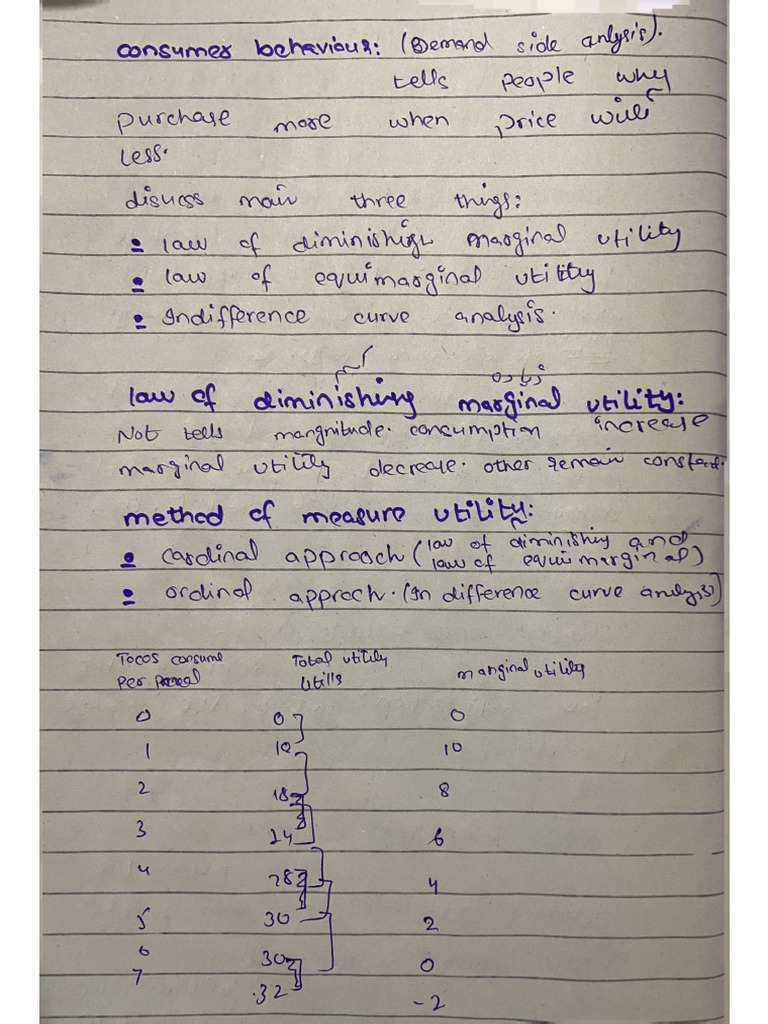 consumer behaviour: (Demand side anlysis).
tells people why
purchase more when price will
less.
disucss main three things:
• law of diminishign marginal utility
• law of equimarginal utility
• Indifference curve analysis.
زیادہ
law of diminishing marginal utility:
Not tells mangnitude. consumption increase
marginal utility decrease. other remain constant.
method of measure utility:
• cardinal approach (law of diminishing and
law of equimarginal)
• ordinal approch. (In difference curve analysis)
Tocos consume Total utility marginal utility
Per meal Utills
0 0 0
1 10 10
2 18 8
3 24 6
4 28 4
5 30 2
6 30 0
7 .32 -2